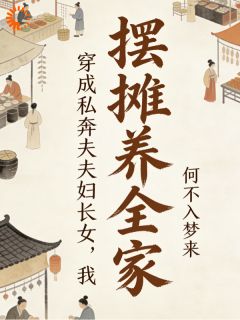 穿成私奔夫夫妇长女，我
摆摊养全家
何不入梦来